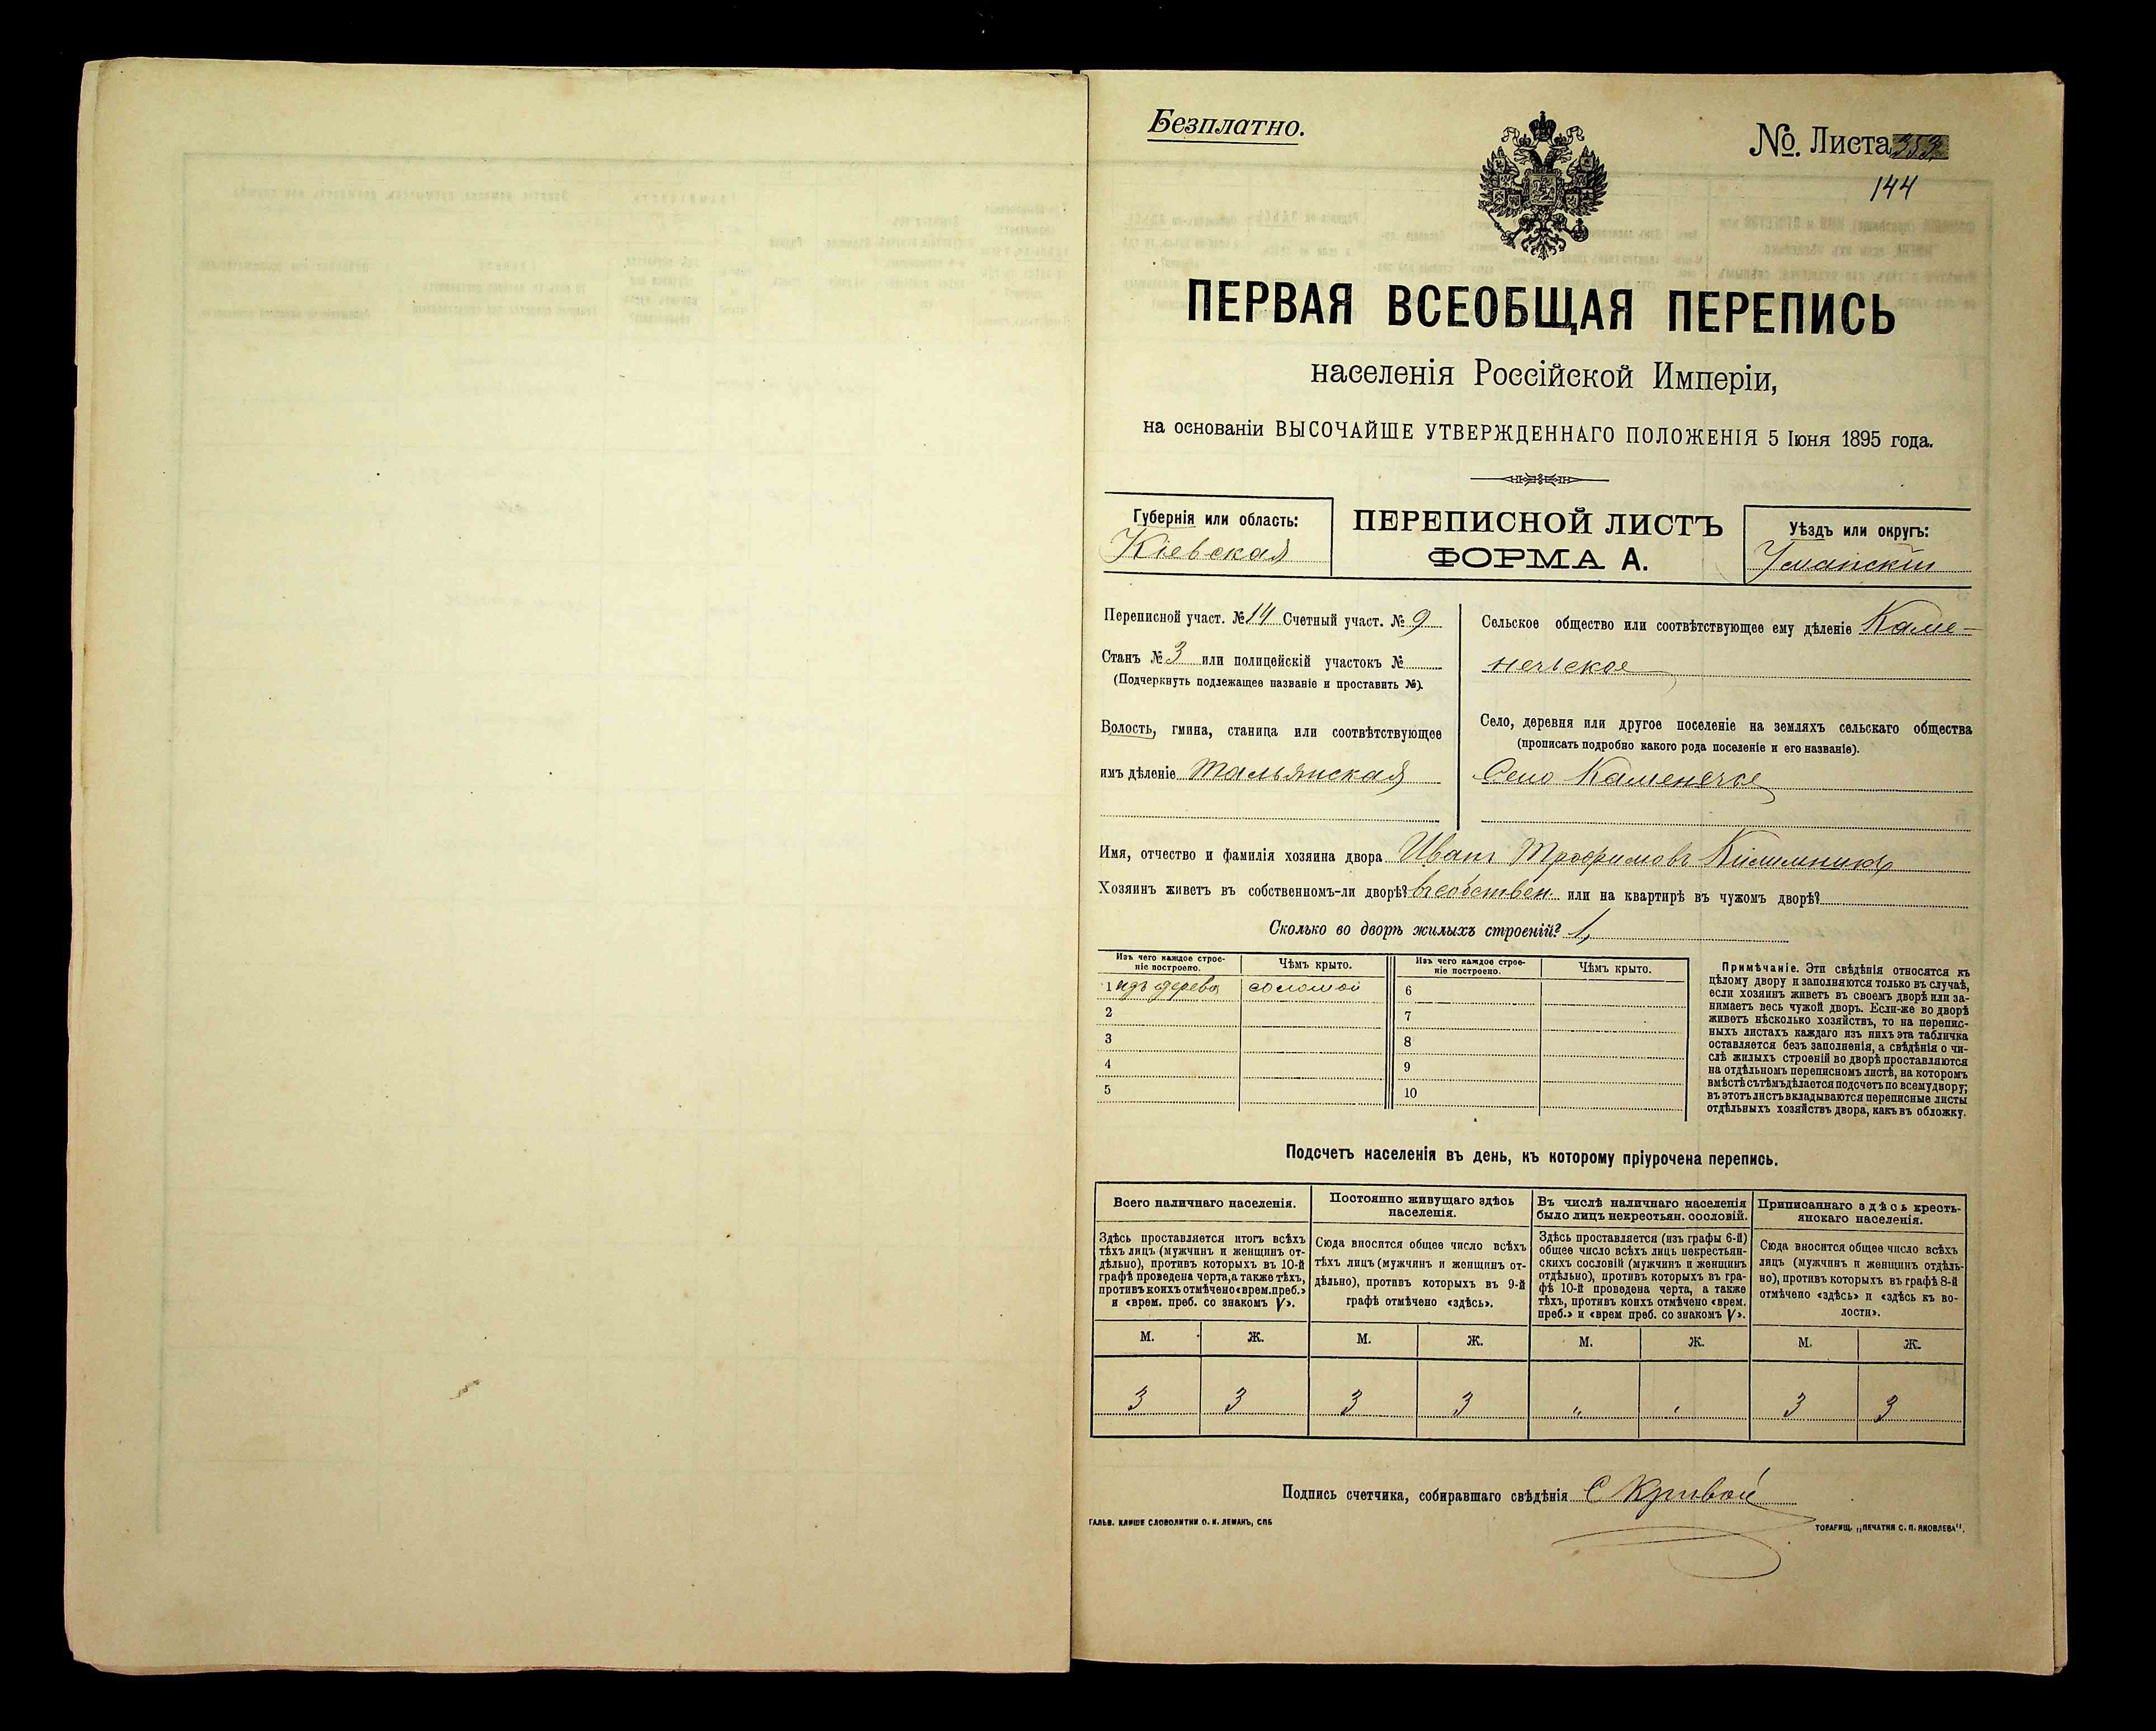 Безплатно.
№. Листа 353
144
ПЕРВАЯ ВСЕОБЩАЯ ПЕРЕПИСЬ
населенія Россійской Имперіи,
на основаніи ВЫСОЧАЙШЕ УТВЕРЖДЕННАГО ПОЛОЖЕНІЯ 5 Іюня 1895 года.
Губернія или область:
Кіевская
ПЕРЕПИСНОЙ ЛИСТЪ
ФОРМА А.
Уѣздъ или округъ:
Уманскій
Переписной участ. № 14 Счетный участ. № 9
Станъ № 3 или полицейскій участокъ №
(Подчеркнуть подлежащее названіе и проставить №).
Волость, гмина, станица или соотвѣтствующее
имъ дѣленіе Тальянская
Сельское общество или соотвѣтствующее ему дѣленіе Каме-
нечьское
Село, деревня или другое поселеніе на земляхъ сельскаго общества
(прописать подробно какого рода поселеніе и его названіе).
Село Каменечье
Имя, отчество и фамилія хозяина двора Иванъ Трофимовъ Килимникъ
Хозяинъ живетъ въ собственномъ-ли дворѣ? въ собствен. или на квартирѣ въ чужомъ дворѣ?
Сколько во дворѣ жилыхъ строеній? 1,
Изъ чего каждое строе-
ніе построено.
Чѣмъ крыто.
Изъ чего каждое строе-
ніе построено.
Чѣмъ крыто.
1 изъ дерева соломой 6
2 7
3 8
4 9
5 10
Примѣчаніе. Эти свѣдѣнія относятся къ
цѣлому двору и заполняются только въ случаѣ,
если хозяинъ живетъ въ своемъ дворѣ или за-
нимаетъ весь чужой дворъ. Если-же во дворѣ
живетъ нѣсколько хозяйствъ, то на перепис-
ныхъ листахъ каждаго изъ нихъ эта табличка
оставляется безъ заполненія, а свѣдѣнія о чи-
слѣ жилыхъ строеній во дворѣ проставляются
на отдѣльномъ переписномъ листѣ, на которомъ
вмѣстѣ съ тѣмъ дѣлается подсчетъ по всему двору;
въ этотъ листъ вкладываются переписные листы
отдѣльныхъ хозяйствъ двора, какъ въ обложку.
Подсчетъ населенія въ день, къ которому пріурочена перепись.
Всего наличнаго населенія.
Здѣсь проставляется итогъ всѣхъ
тѣхъ лицъ (мужчинъ и женщинъ от-
дѣльно), противъ которыхъ въ 10-й
графѣ проведена черта, а также тѣхъ,
противъ коихъ отмѣчено «врем. преб.»
и «врем. преб. со знакомъ V».
Постоянно живущаго здѣсь
населенія.
Сюда вносится общее число всѣхъ
тѣхъ лицъ (мужчинъ и женщинъ от-
дѣльно), противъ которыхъ въ 9-й
графѣ отмѣчено «здѣсь».
Въ числѣ наличнаго населенія
было лицъ некрестьян. сословій.
Здѣсь проставляется (изъ графы 6-й)
общее число всѣхъ лицъ некрестьян-
скихъ сословій (мужчинъ и женщинъ
отдѣльно), противъ которыхъ въ гра-
фѣ 10-й проведена черта, а также
тѣхъ, противъ коихъ отмѣчено «врем.
преб.» и «врем преб. со знакомъ V».
Приписаннаго здѣсь кресть-
янскаго населенія.
Сюда вносится общее число всѣхъ
лицъ (мужчинъ и женщинъ отдѣль-
но), противъ которыхъ въ графѣ 8-й
отмѣчено «здѣсь» и «здѣсь къ во-
лости».
М. Ж. М. Ж. М. Ж. М. Ж.
3 3 3 3 „ „ 3 3
Подпись счетчика, собиравшаго свѣдѣнія С Кривой
ГАЛЬВ. КЛИШЕ СЛОВОЛИТНИ О. И. ЛЕМАНЪ, СПБ
ТОВАРИЩ. „ПЕЧАТНЯ С. П. ЯКОВЛЕВА“.